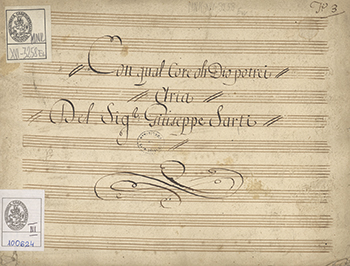 No 3
XVI-3258
Con qual Core oh Dio potrei
Aria
Del Sigr Giuseppe Sarti
XI
100624